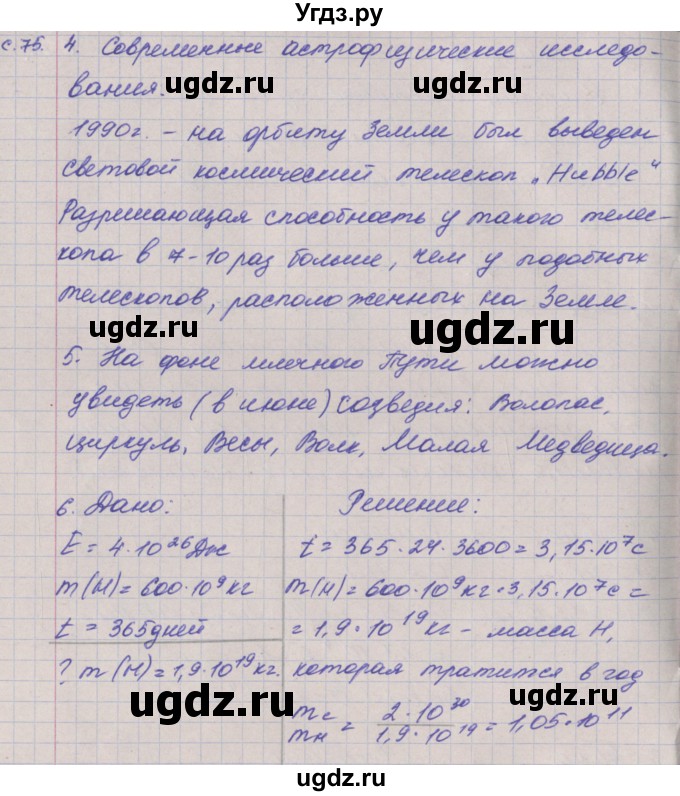 Угдз.ру
с.75. 4. Современные астрофизические исследо-
вания.
ugdz.ru ugdz.ru
1990г. – на орбиту Земли был выведен
световой космический телескоп „Hubble“
ugdz.ru ugdz.ru
Разрешающая способность у такого телес-
копа в 7-10 раз больше, чем у подобных
телескопов, расположенных на Земле.
ugdz.ru ugdz.ru
5. На фоне млечного Пути можно
увидеть (в июне) созведия: Волопас,
ugdz.ru ugdz.ru
циркуль, Весы, Волк, Малая Медведица.
6. Дано: Решение:
ugdz.ru ugdz.ru
E = 4·10²⁶Дж t = 365·24·3600 = 3,15·10⁷с
m(H) = 600·10⁹кг m(H) = 600·10⁹кг·3,15·10⁷с =
t = 365дней = 1,9·10¹⁹кг – масса H,
ugdz.ru ugdz.ru
? m(H) = 1,9·10¹⁹кг. которая тратится в год
mс/mн = 2·10³⁰/1,9·10¹⁹ = 1,05·10¹¹
ugdz.ru ugdz.ru
ugdz.ru